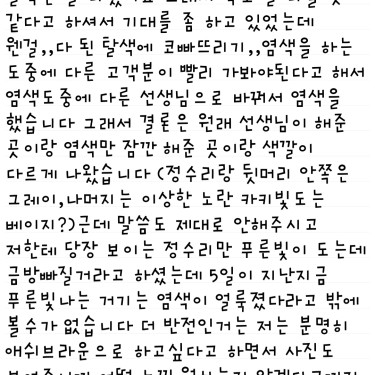 같다고 하셔서 기대를 좀 하고 있었는데
웬걸,,다 된 탈색에 코빠뜨리기,,염색을 하는
도중에 다른 고객분이 빨리 가봐야된다고 해서
염색도중에 다른 선생님으로 바꿔서 염색을
했습니다 그래서 결론은 원래 선생님이 해준
곳이랑 염색만 잠깐 해준 곳이랑 색깔이
다르게 나왔습니다 (정수리랑 뒷머리 안쪽은
그레이,나머지는 이상한 노란 카키빛도는
베이지?)근데 말씀도 제대로 안해주시고
저한테 당장 보이는 정수리만 푸른빛이 도는데
금방빠질거라고 하셨는데 5일이 지난지금
푸른빛나는 거기는 염색이 얼룩졌다라고 밖에
볼수가 없습니다 더 반전인거는 저는 분명히
애쉬브라운으로 하고싶다고 하면서 사진도